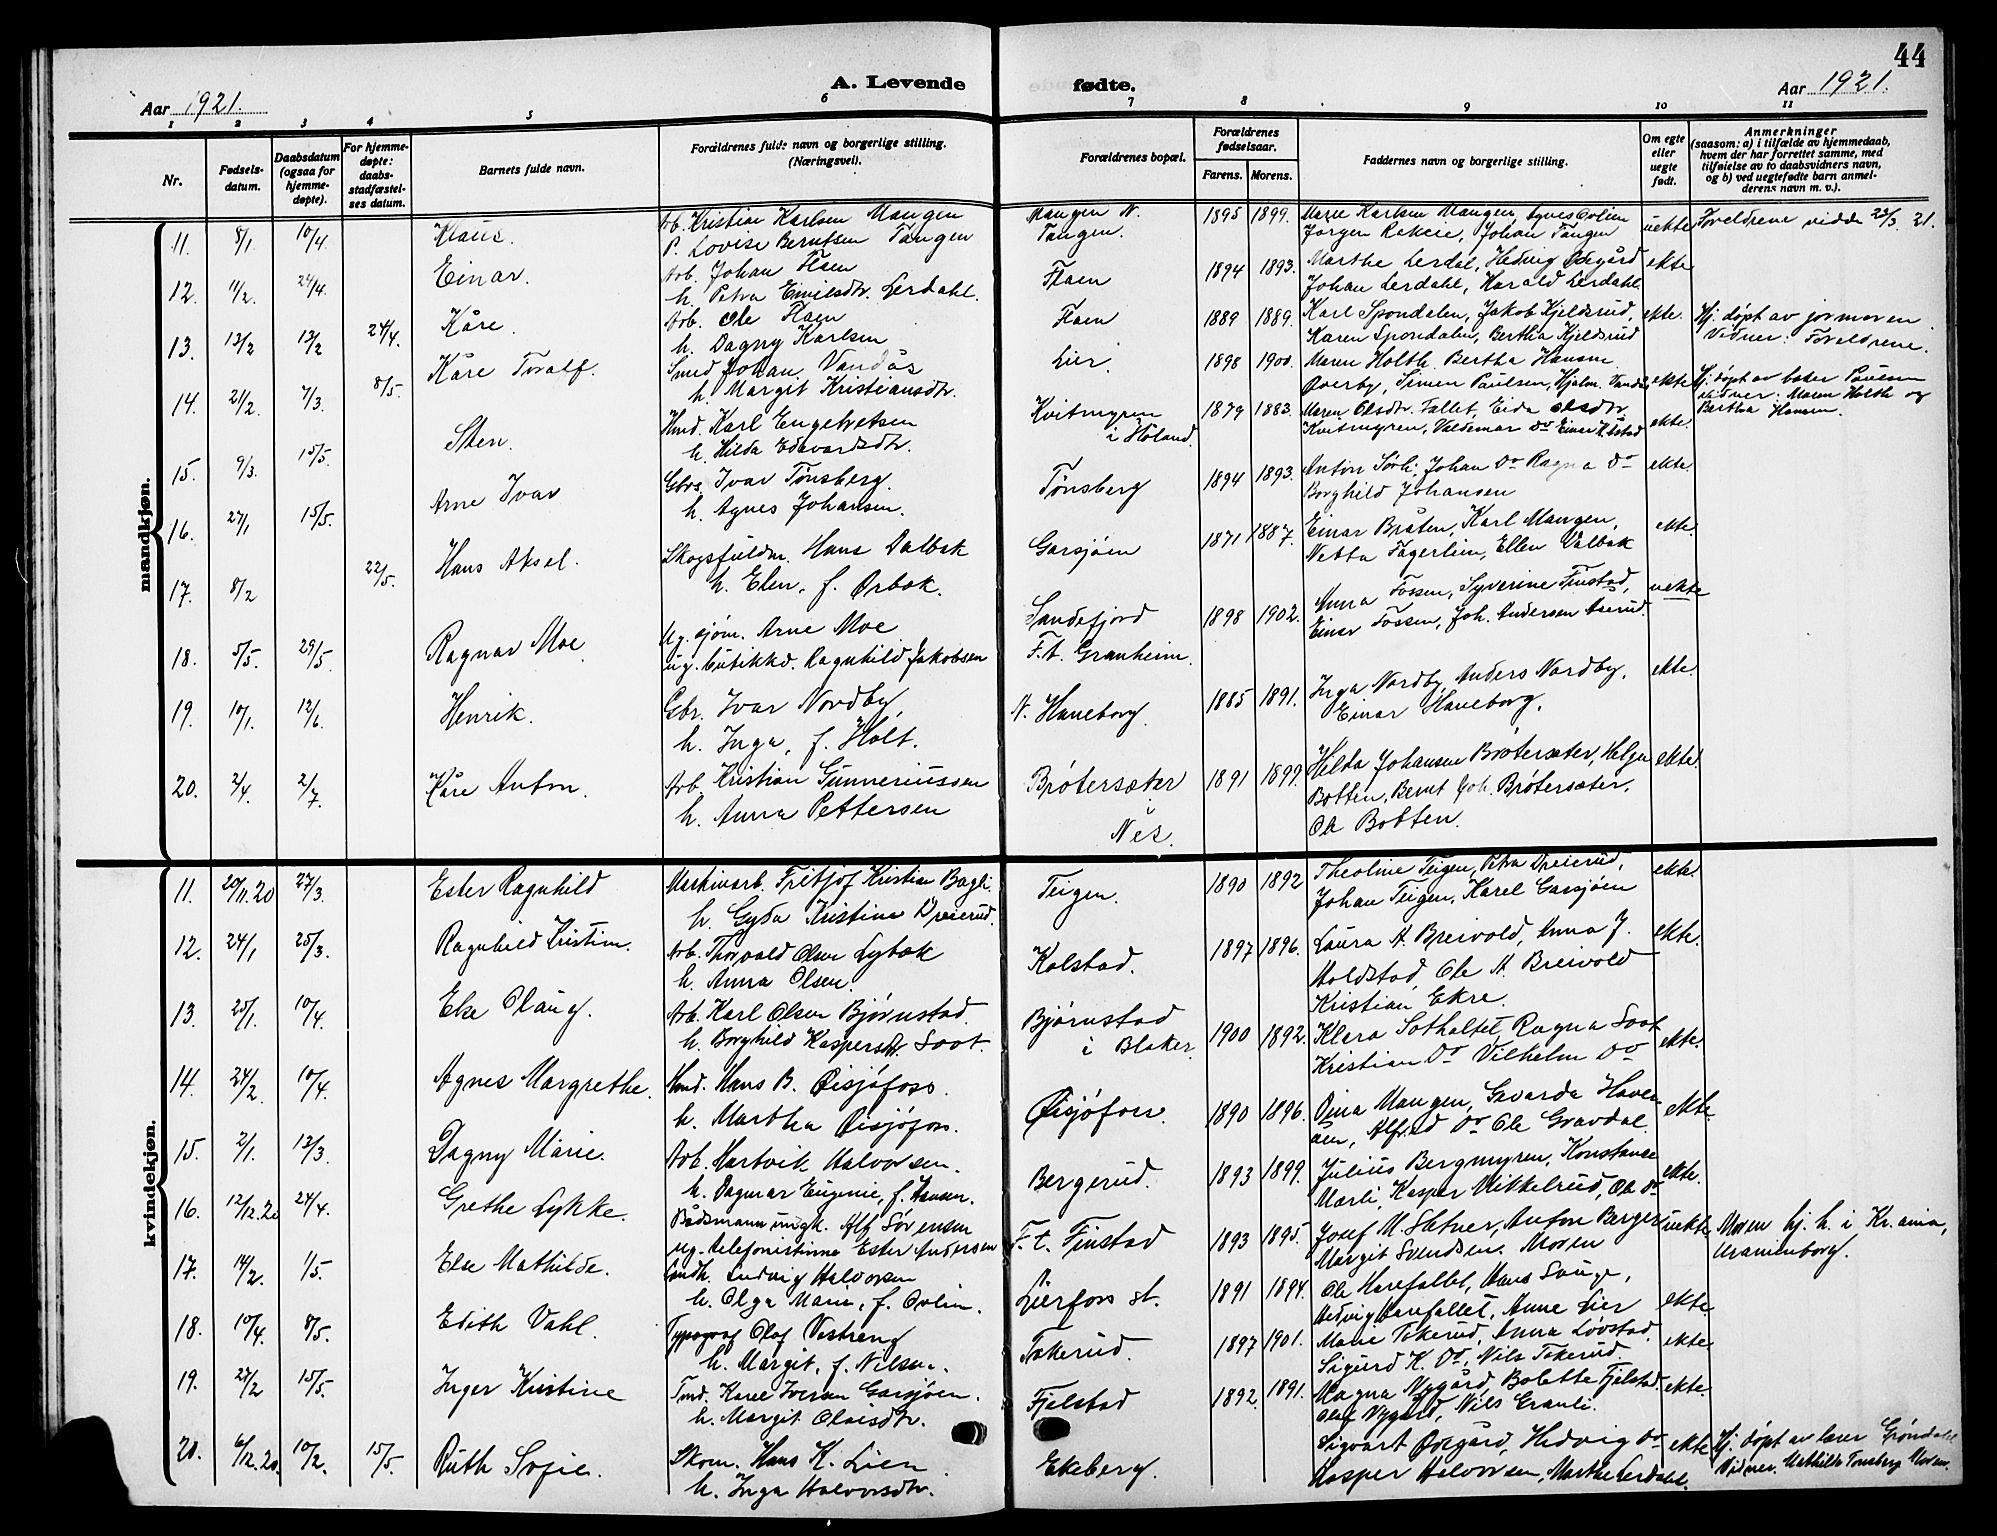 44
A. Levende fødte.
Aar 1921.
Aar 1921.
1 2 3 4 5 6 7 8 9 10 11
Nr.
Fødsels-
datum.
Daabsdatum
(ogsaa for
hjemme-
døpte).
For hjemme-
døpte:
daabs-
stadfæstel-
ses datum.
Barnets fulde navn.
Forældrenes fulde navn og borgerlige stilling.
(Næringsvei).
Forældrenes bopæl.
Forældrenes
fødselsaar.
Farens. Morens.
Faddernes navn og borgerlige stilling.
Om egte
eller
uegte
født.
Anmerkninger
(saasom: a) i tilfælde av hjemmedaab,
hvem der har forrettet samme, med
tilføielse av to daabsvidners navn,
og b) ved uegtefødte barn anmel-
derens navn m. v.).
mandkjøn.
11. 8/1 10/4 Klaus. Arb. Kristian Karlsen Mangen Mangen N. 1895 1899. Marie Karlsen Mangen, Agnes uekte Foreldrene viddd 23/3 21.
P. Lovise Berntsen Tangen Tangen. Jørgen Rakeie, Johan Tangen
12. 11/2. 24/4. Einar. Arb. Johan Flaen Flaen 1894 1893. Marthe Lerdal, Hedvig Ødegård ekte
h. Petra Emilsdtr. Lerdahl. Johan Lerdahl, Harald Lerdahl
13. 13/2 13/2 24/4. Kåre. Arb. Ole Flaen Flaen 1889 1889. Karl Spondalen, Jakob Kjeldsrud, ekte. Hj. døpt av jormoren.
h. Dagny Karlsen Karen Spondalen, Bertha Kjeldsrud Vidner: Foreldrene.
14. 21/2. 7/3. 8/5. Kåre Toralf. Smed Johan Vandås Lier. 1898 1900. Maren Holth. Bertha Hansen ekte Hj. døpt av Paulsen
h. Margit Kristiansdtr. Overby, Simen Paulsen, Hjalm. Vandås vidner: Maren Holth og
Bertha Hansen.
15. 9/3. 15/5. Sten. Hmd. Karl Engebretsen Kvitmyren 1879 1883. Maren Olsdtr. Fallet, Eida Olsdtr. ekte.
h. Hilda Edevardsdtr. i Høland. Kvitmyren, Valdemar do Einar
16. 27/1 15/5. Arne Ivar Gbrs. Ivar Tønsberg. Tønsberg 1894 1893. Anton Sørli, Johan do Ragna do ekte.
h. Agnes Johansen. Borghild Johansen
17. 8/2 22/5. Hans Aksel. Skogsfuldm. Hans Dalbak Garsjøen 1871 1887. Einar Bråten, Karl Mangen, ekte.
h. Elen, f. Orbak. Netta Fagerlien, Ellen
18. 5/5. 29/5. Ragnar Moe Ug. sjøm. Arne Moe Sandefjord 1898 1902. Anna Fossen, Syverine Finstad, uekte
ug. butikkd. Ragnhild Jakobsen F.t. Granheim. Einar Fossen, Joh. Andersen Aserud.
19. 10/1. 12/6. Henrik. Gbr. Ivar Nordby, N. Haneborg. 1885 1891. Inga Nordby, Anders Nordby, ekte.
h. Inga, f. Holt. Einar Haneborg.
20. 2/4. 2/7. Kåre Anton. Arb. Kristian Gunneriussen Brøtersæter 1891 1899. Hilda Johansen Brøtersæter, Helga ekte.
h. Anna Pettersen i Botten, Bernt Joh. Brøtersæter,
Nes. Ole Botten.
kvindekjøn.
11. 20/11.20 27/3. Ester Ragnhild Maskinarb. Fritjof Kristian Bagli Teigen. 1890 1892 Theoline Teigen, Petra Dreierud, ekte.
h. Gyda Kristine Dreierud. Johan Teigen, Karel Garsjøen
12. 24/1 25/3. Ragnhild Kristine. Arb. Thorvald Olsen Lybæk Kolstad. 1897 1896. Laura A. Breivold, Anna J. ekte.
h. Anna Olsen. Holdstad, Ole A. Breivold
Kristian Ekre.
13. 25/1. 10/4. Else Olaug. Arb. Karl Olsen Bjørnstad. Bjørnstad 1900 1892. Klara Sothaltet, Ragna Soot ekte.
h. Borghild Kaspersdtr. Soot. i Blaker. Kristian do Vilhelm do
14. 24/2. 10/4. Agnes Margrethe. Hmd. Hans B. Øisjøfoss. Øisjøfoss. 1890 1896. Dina Mangen, Gvarda Haver- ekte.
h. Martha Øisjøfoss. åen, Alfred do Ole Gravdal.
15. 2/1. 13/3. Dagny Marie. Arb. Hartvik Halvorsen. Bergerud. 1893 1899. Julius Bergmyren, Konstanse ekte.
h. Dagmar Eugenie, f. Hansen. Mærli, Kasper Mikkelrud, Ole do
16. 12/12.20 24/4. Grethe Lykke. Bådsmann ungk. Alf Sørensen F. t. Finstad 1893 1895. Josef M. Sletner, Anton Berger uekte Moren hj. h. i Kr.ania,
ug. telefonistinne Ester Andersen Margit Svendsen. Moren Uranienborg.
17. 14/2. 1/5. Else Mathilde. Landh. Ludvig Halvorsen Lierfoss st. 1891 1894. Ole Harefallet, Hans Sauge, ekte.
h. Olga Marie, f. Orlin. Hedvig Harefallet, Anne Lier
18. 10/4. 8/5. Edith Vahl. Typograf Olaf Vestreng Tokerud. 1897 1901. Marie Tokerud, Anna Løvstad. ekte.
h. Margit, f. Nilsen. Sigurd K. do, Nils Tokerud.
19. 27/2 15/5. Inger Kristine Tmd. Karel Iversen Garsjøen. Fjelstad 1892. 1891. Magna Nygård, Bolette Fjelstad. ekte.
h. Margit Olaisdtr. Olaf Nygård, Nils Granli.
20. 6/12.20. 10/2. 15/5. Ruth Sofie. Skom. Hans K. Lien Ekeberg. Sigvart Ødegård, Hedvig do ekte Hj. døpt av lærer Grøndahl
h. Inga Halvorsdtr. Kasper Halvorsen, Marthe Lerdahl. Vidner. Mathilde Tonsberg Moren.